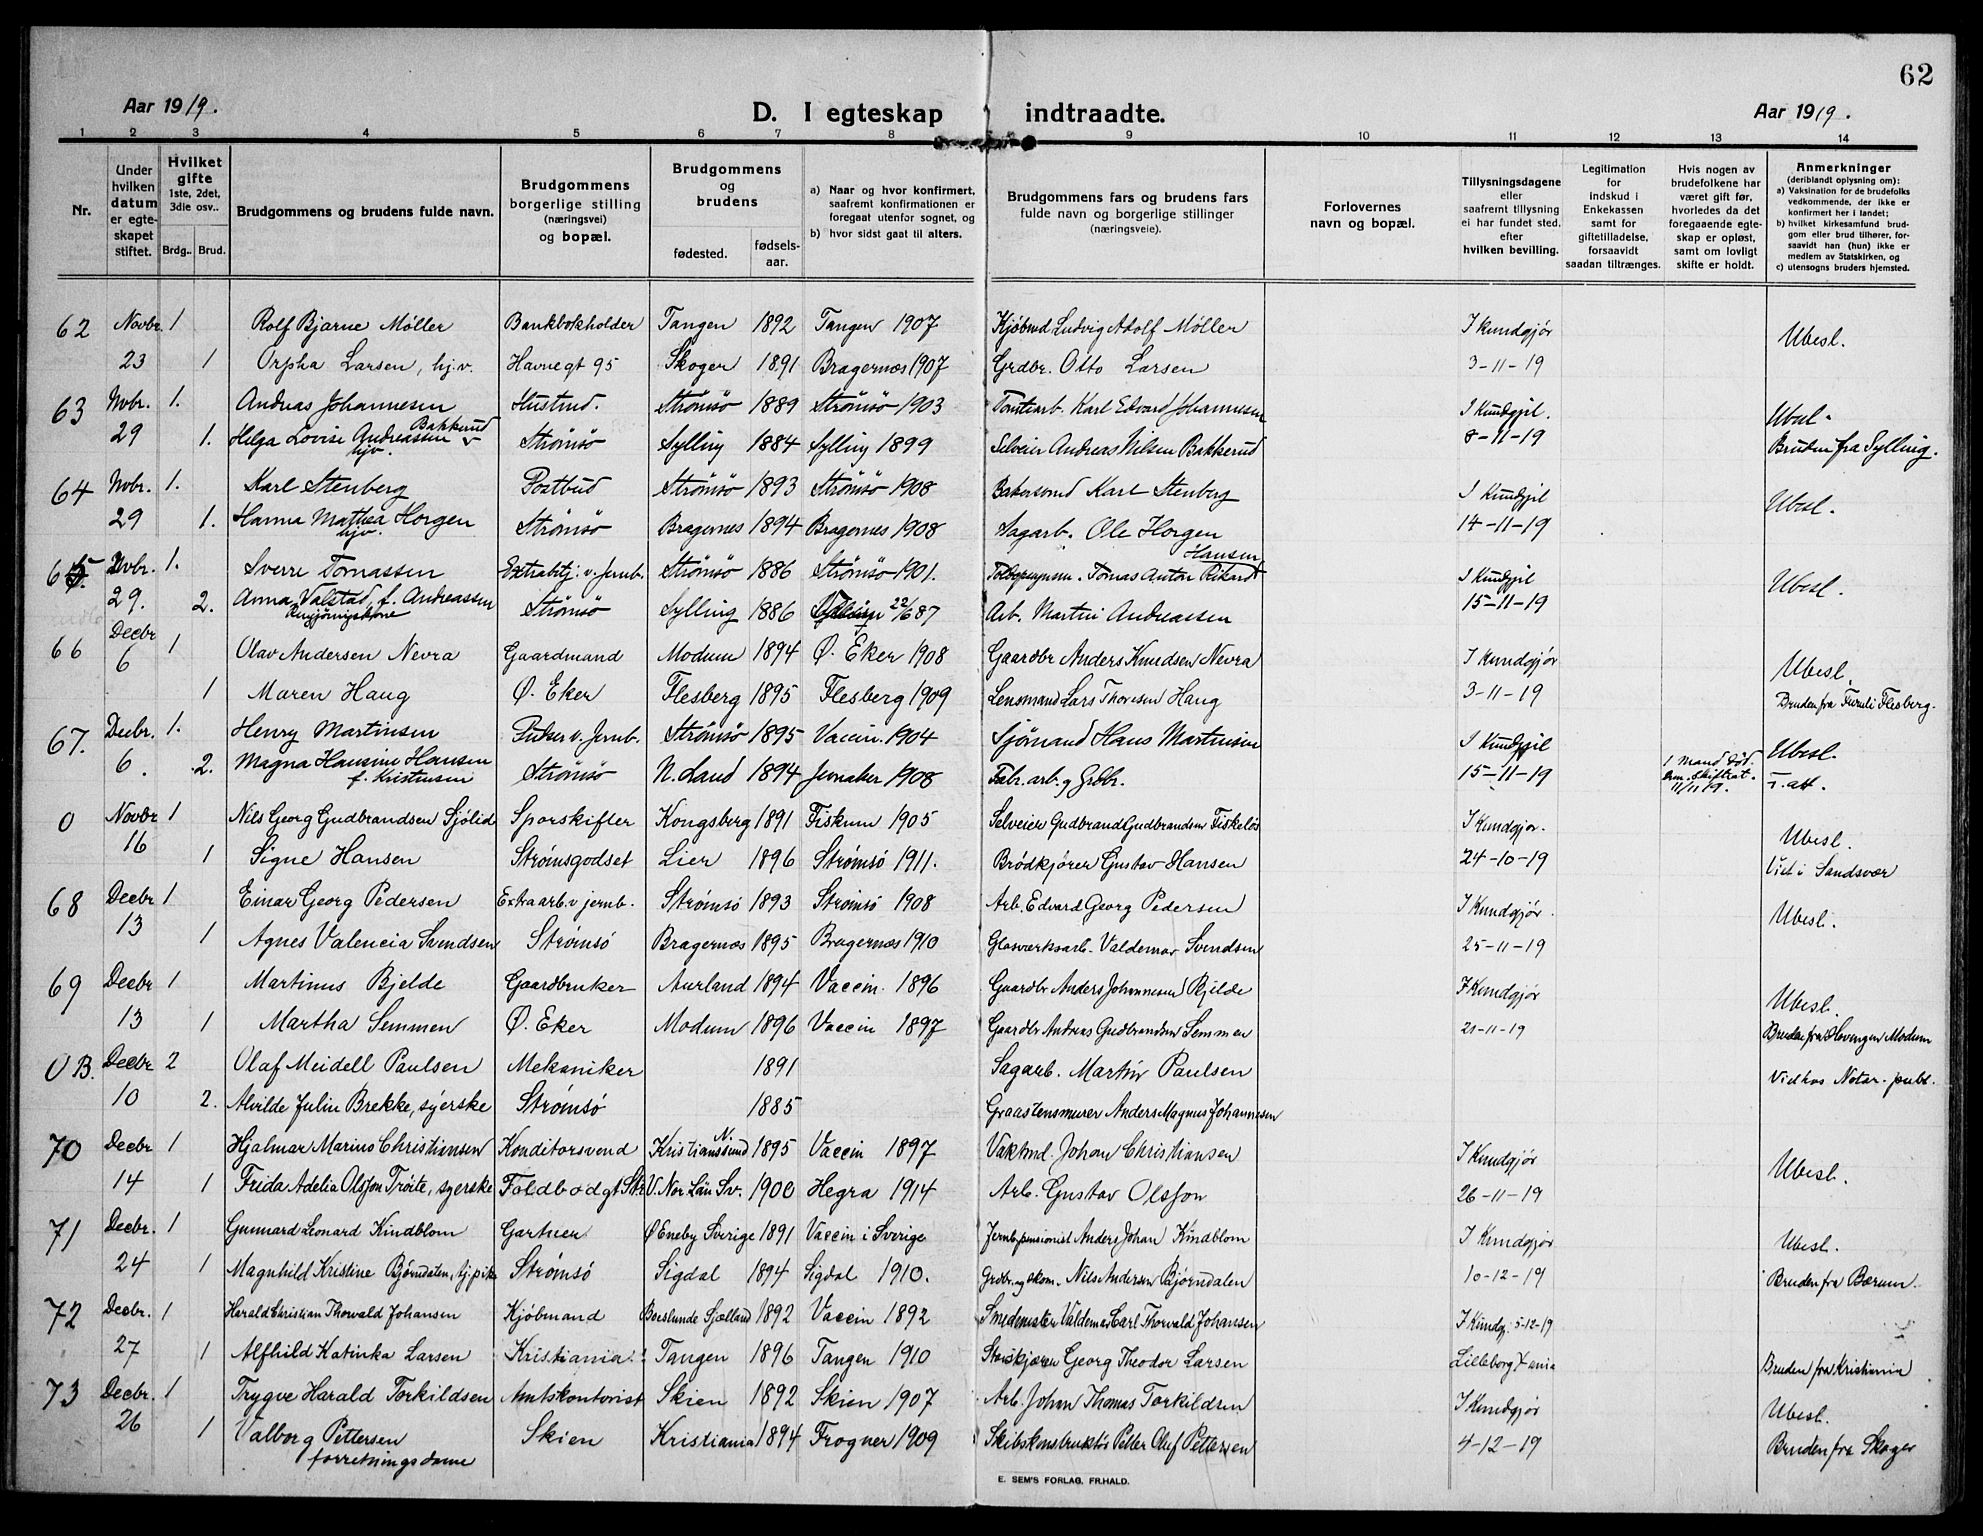 62
Aar 1919.
D. I egteskap indtraadte.
Aar 1919.
1 2 3 4 5 6 7 8 9 10 11 12 13 14
Nr.
Under hvilken datum er egteskapet stiftet.
Hvilket gifte 1ste, 2det, 3die osv..
Brdg.. Brud.
Brudgommens og brudens fulde navn.
Brudgommens borgerlige stilling (næringsvei) og bopæl.
Brudgommens og brudens
fødested. fødselsaar.
a) Naar og hvor konfirmert, saafremt konfirmationen er foregaat utenfor sognet, og
b) hvor sidst gaat til alters.
Brudgommens fars og brudens fars fulde navn og borgerlige stillinger (næringsveie).
Forlovernes navn og bopæl.
Tillysningsdagene eller saafremt tillysning ei har fundet sted, efter hvilken bevilling.
Legitimation for indskud i Enkekassen samt for giftetilladelse, forsaavidt saadan tiltrænges.
Hvis nogen av brudefolkene har været gift før, hvorledes da det foregaaende egteskap er opløst, samt om lovligt skifte er holdt.
Anmerkninger (deriblandt oplysning om):
a) Vaksination for de brudefolks vedkommende, der ikke er konfirmert her i landet;
b) hvilket kirkesamfund brudgom eller brud tilhører, forsaavidt han (hun) ikke er medlem av Statskirken, og
c) utensogns bruders hjemsted.
62 Novbr 1 Rolf Bjarne Møller Bankbokholder Tangen 1892 Tangen 1907 Kjøbmd Ludvig Adolf Møller I Kundgjør Ubesl.
23 1 Orpha Larsen, hj.v. Havnegt 95 Skoger 1891 Bragernæs 1907 Grdbr. Otto Larsen 3-11-19
63 Nvbr. 1. Andreas Johannesen Strømsö 1889 Strømsö 1903 Karl Edvard Johannesen I Kundgjl. Ubesl.
29 1. Helga Lovise Andreassen Bakkerud hjv. Strømsö Sylling 1884 Sylling 1899 Selveier Andreas Nilsen Bakkerud 8-11-19 Bruden fra Sylling.
64 Nvbr. 1. Karl Stenberg Postbud Strömsö 1893 Strömsö 1908 Karl Stenberg I Kundgjl Ubesl.
29 1. Hanna Mathea Horgen hjv. Strömsö Bragernes 1894 Bragernes 1908 Sagarb. Ole Horgen 14-11-19
65 Nvbr. 1. Sverre Tomassen Extrabetj. v. Jernb. Strömsö 1886 Strömsö 1901. Tomas Anton Rikard Hansen I Kundgjl Ubesl.
29. 2. Anna Valstad, f. Andreassen Rengjøringskone Strömsö Sylling 1886 22/6 87 Arb. Martin Andreassen 15-11-19
66 Decbr 6 1 Olav Andersen Nevra Gaardmand Modum 1894 Ø. Eker 1908 Gaardbr Anders Knudsen Nevra I Kundgjør Ubesl.
1 Maren Haug Ø. Eker Flesberg 1895 Flesberg 1909 Lensmand Lars Thoresen Haug 3-11-19 Bruden fra Furuli Flesberg.
67. Decbr. 1. Henry Martinsen Pudser v. Jernb. Strömsö 1895 Vaccin. 1904 Sjömand Hans Martinsen I Kundgjl Ubesl.
6. 2. Magna Hansine Hansen f. Kristensen Strömsö N. Land 1894 Jevnaker 1908 Fabr. arb. og Grdbr. 15-11-19 1 Mand död. 11/11 19. T. att.
0 Novbr 1 Nils Georg Gudbrandsen Sjølid Sporskifter Kongsberg 1891 Fiskum 1905 Selveier Gudbrand Gudbrandsen Fiskeløs I Kundgjør. Ubesl.
16 1 Signe Hansen Strømsgodset Lier 1896 Strømsö 1911. Brödkjører Gustav Hansen 24-10-19 Viet i Sandsvær
68 Decbr 1 Einar Georg Pedersen Extraarb. v jernb. Strømsö 1893 Strømsö 1908 Arb. Edvard Georg Pedersen I Kundgjør. Ubesl.
13 1 Agnes Valencia Svendsen Strømsö Bragernæs 1895 Bragernæs 1910 Glasværksarb. Valdemar Svendsen 25-11-19
69 Decbr 1 Martinus Bjelde Gaardbruker Aurland 1894 Vaccin. 1896 Gaardbr Anders Johannesen Bjelde I Kundgjør Ubesl.
13 1 Martha Semmen Ø. Eker Modum 1896 Vaccin 1897 Gaardbr Andreas Gudbrandsen Semmen 21-11-19 Bruden fra Hovengen Modum
0 B. Decbr 2 Olaf Meidell Paulsen Mekaniker 1891 Sagarb. Martin Paulsen Vied hos Notar. publ.
10 2. Alvilde Julin Brekke, syerske Strømsö 1885 Graastensmurer Anders Magnus Johannesen
70 Decbr 1 Hjalmar Marino Christiansen Konditorsvend Kristianssund N. 1895 Vaccin 1897 Vaktmd. Johan Christiansen I Kundgjør Ubesl.
14 1 Frida Adelia Olsson Tröite, syerske Toldbodgt Str V. Nor Län Sv. 1900 Hegra 1914 Arb. Gustav Olsson 26-11-19
71 Decbr. 1 Gunnard Leonard Kindblom Gartner Ø Eneby Sverige 1891 Vaccin i Sverige Jernb.pensionist Anders Johan Kindblom I Kundgjør Ubesl.
24 1 Magnhild Kristine Bjørndalen, hj.pike Strømsö Sigdal 1894 Sigdal 1910. Grdbr. og økon. Nils Andersen Bjørndalen 10-12-19 Bruden fra Bærum.
72 Decbr. 1 Harald Christian Thorvald Johansen Kjøbmand Borslunde Sjælland 1892 Vaccin 1892 Smedemester Valdemar Carl Thorvald Johansen I Kundg. 5-12-19
27 1 Alfhild Katinka Larsen Kristiania. Tangen 1896 Tangen 1910 Georg Theodor Larsen Lilleborg X ania Bruden fra Kristiania
73 Decbr. 1 Trygve Harald Torkildsen Amtskontorist Skien 1892 Skien 1907 Arb. Johan Thomas Torkildsen I Kundgjør Ubesl.
26 1 Valborg Pettersen forretningsdame Skien Kristiania 1894 Frogner 1909 Skibskonstruktør Petter Oluf Pettersen 4-12-19 Bruden fra Skoger
E. SEM'S FORLAG. FR.HALD.